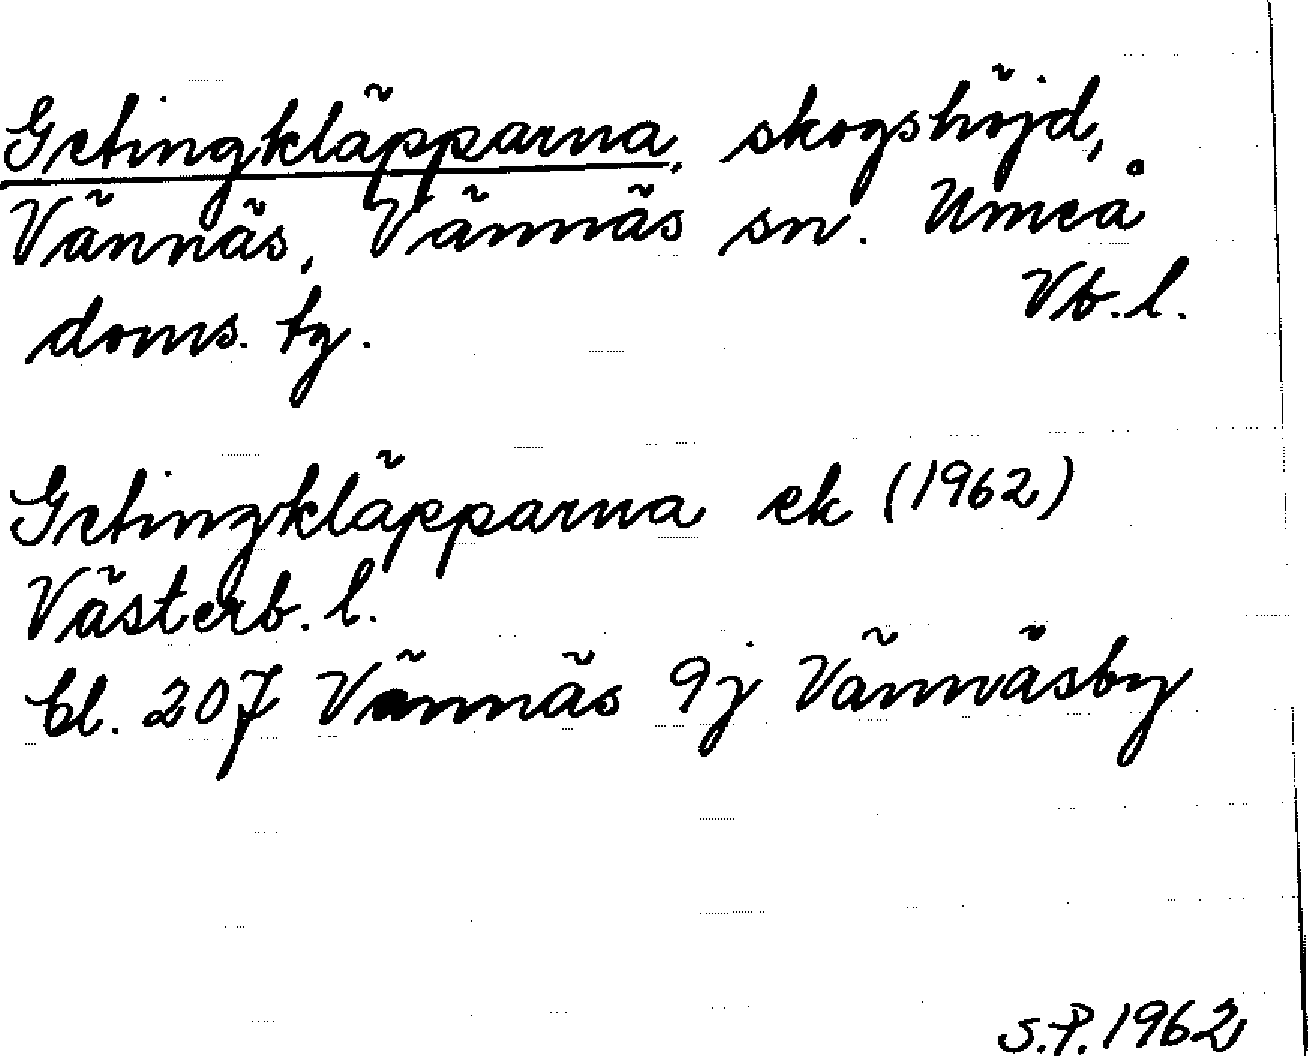 Getingkläpparna, skogshöjd,
Vännäs, Vännäs sn. Umeå
doms. tg. Vb.l.
Getingkläpparna ek (1962)
Västerb. l.
bl. 207 Vännäs 9j Vännäsby
S.P. 1962